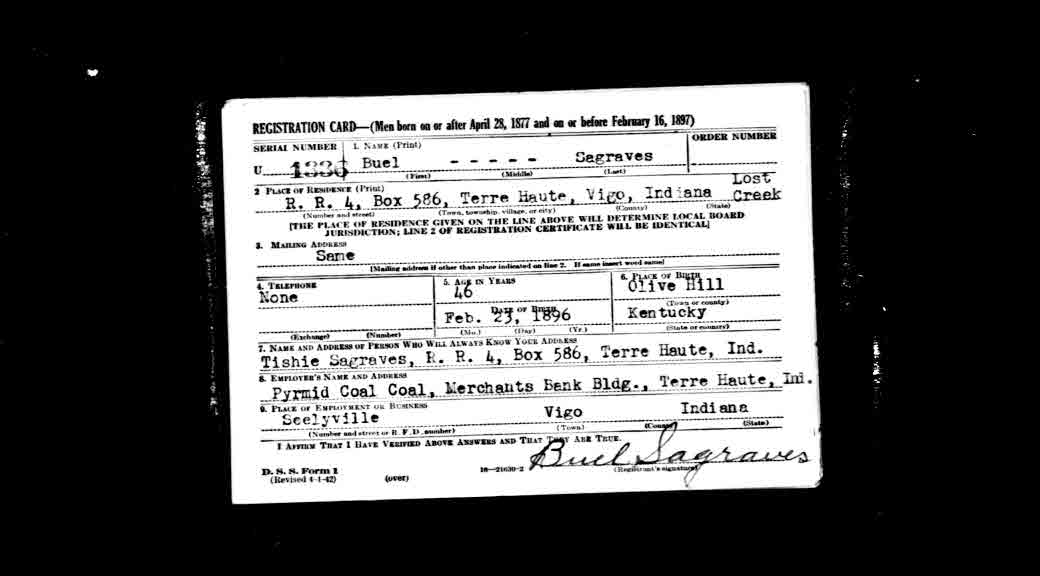 REGISTRATION CARD—(Men born on or after April 28, 1877 and on or before February 16, 1897)
SERIAL NUMBER 1. NAME (Print) ORDER NUMBER
U Buel - - - - - Sagraves
(First) (Middle) (Last)
2 PLACE OF RESIDENCE (Print) Lost
R. R. 4, Box 586, Terre Haute, Vigo, Indiana Creek
(Number and street) (Town, township, village, or city) (County) (State)
[THE PLACE OF RESIDENCE GIVEN ON THE LINE ABOVE WILL DETERMINE LOCAL BOARD
JURISDICTION; LINE 2 OF REGISTRATION CERTIFICATE WILL BE IDENTICAL]
3. MAILING ADDRESS
Same
[Mailing address if other than place indicated on line 2. If same insert word same]
4. TELEPHONE 5. AGE IN YEARS 6. PLACE OF BIRTH
None 46 Olive Hill
DATE OF BIRTH (Town or county)
Feb. 23, 1896 Kentucky
(Exchange) (Number) (Mo.) (Day) (Yr.) (State or country)
7. NAME AND ADDRESS OF PERSON WHO WILL ALWAYS KNOW YOUR ADDRESS
Tishie Sagraves, R. R. 4, Box 586, Terre Haute, Ind.
8. EMPLOYER'S NAME AND ADDRESS
Pyrmid Coal Coal, Merchants Bank Bldg., Terre Haute, Ind.
9. PLACE OF EMPLOYMENT OR BUSINESS
Seelyville Vigo Indiana
(Number and street or R. F. D. number) (Town) (County) (State)
I AFFIRM THAT I HAVE VERIFIED ABOVE ANSWERS AND THAT THEY ARE TRUE.
Buel Sagraves
D. S. S. Form 1 16—21630-2 (Registrant's signature)
(Revised 4-1-42) (over)